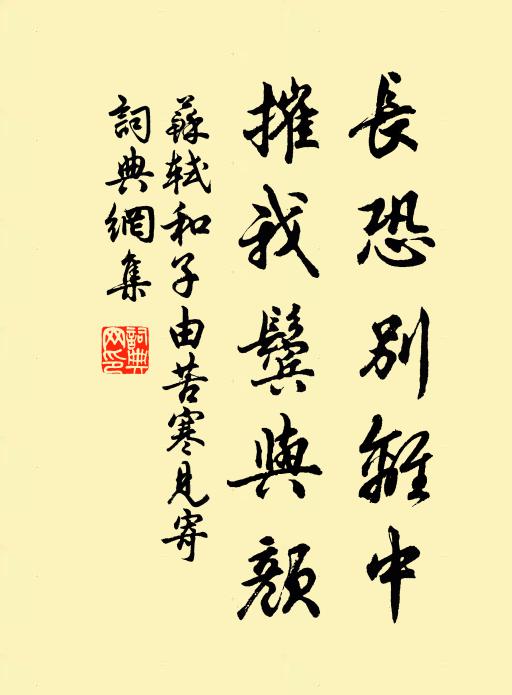 長恐別離中
摧我鬢與顏
蘇軾和子由苦寒見寄
詞典網集
詞典網印